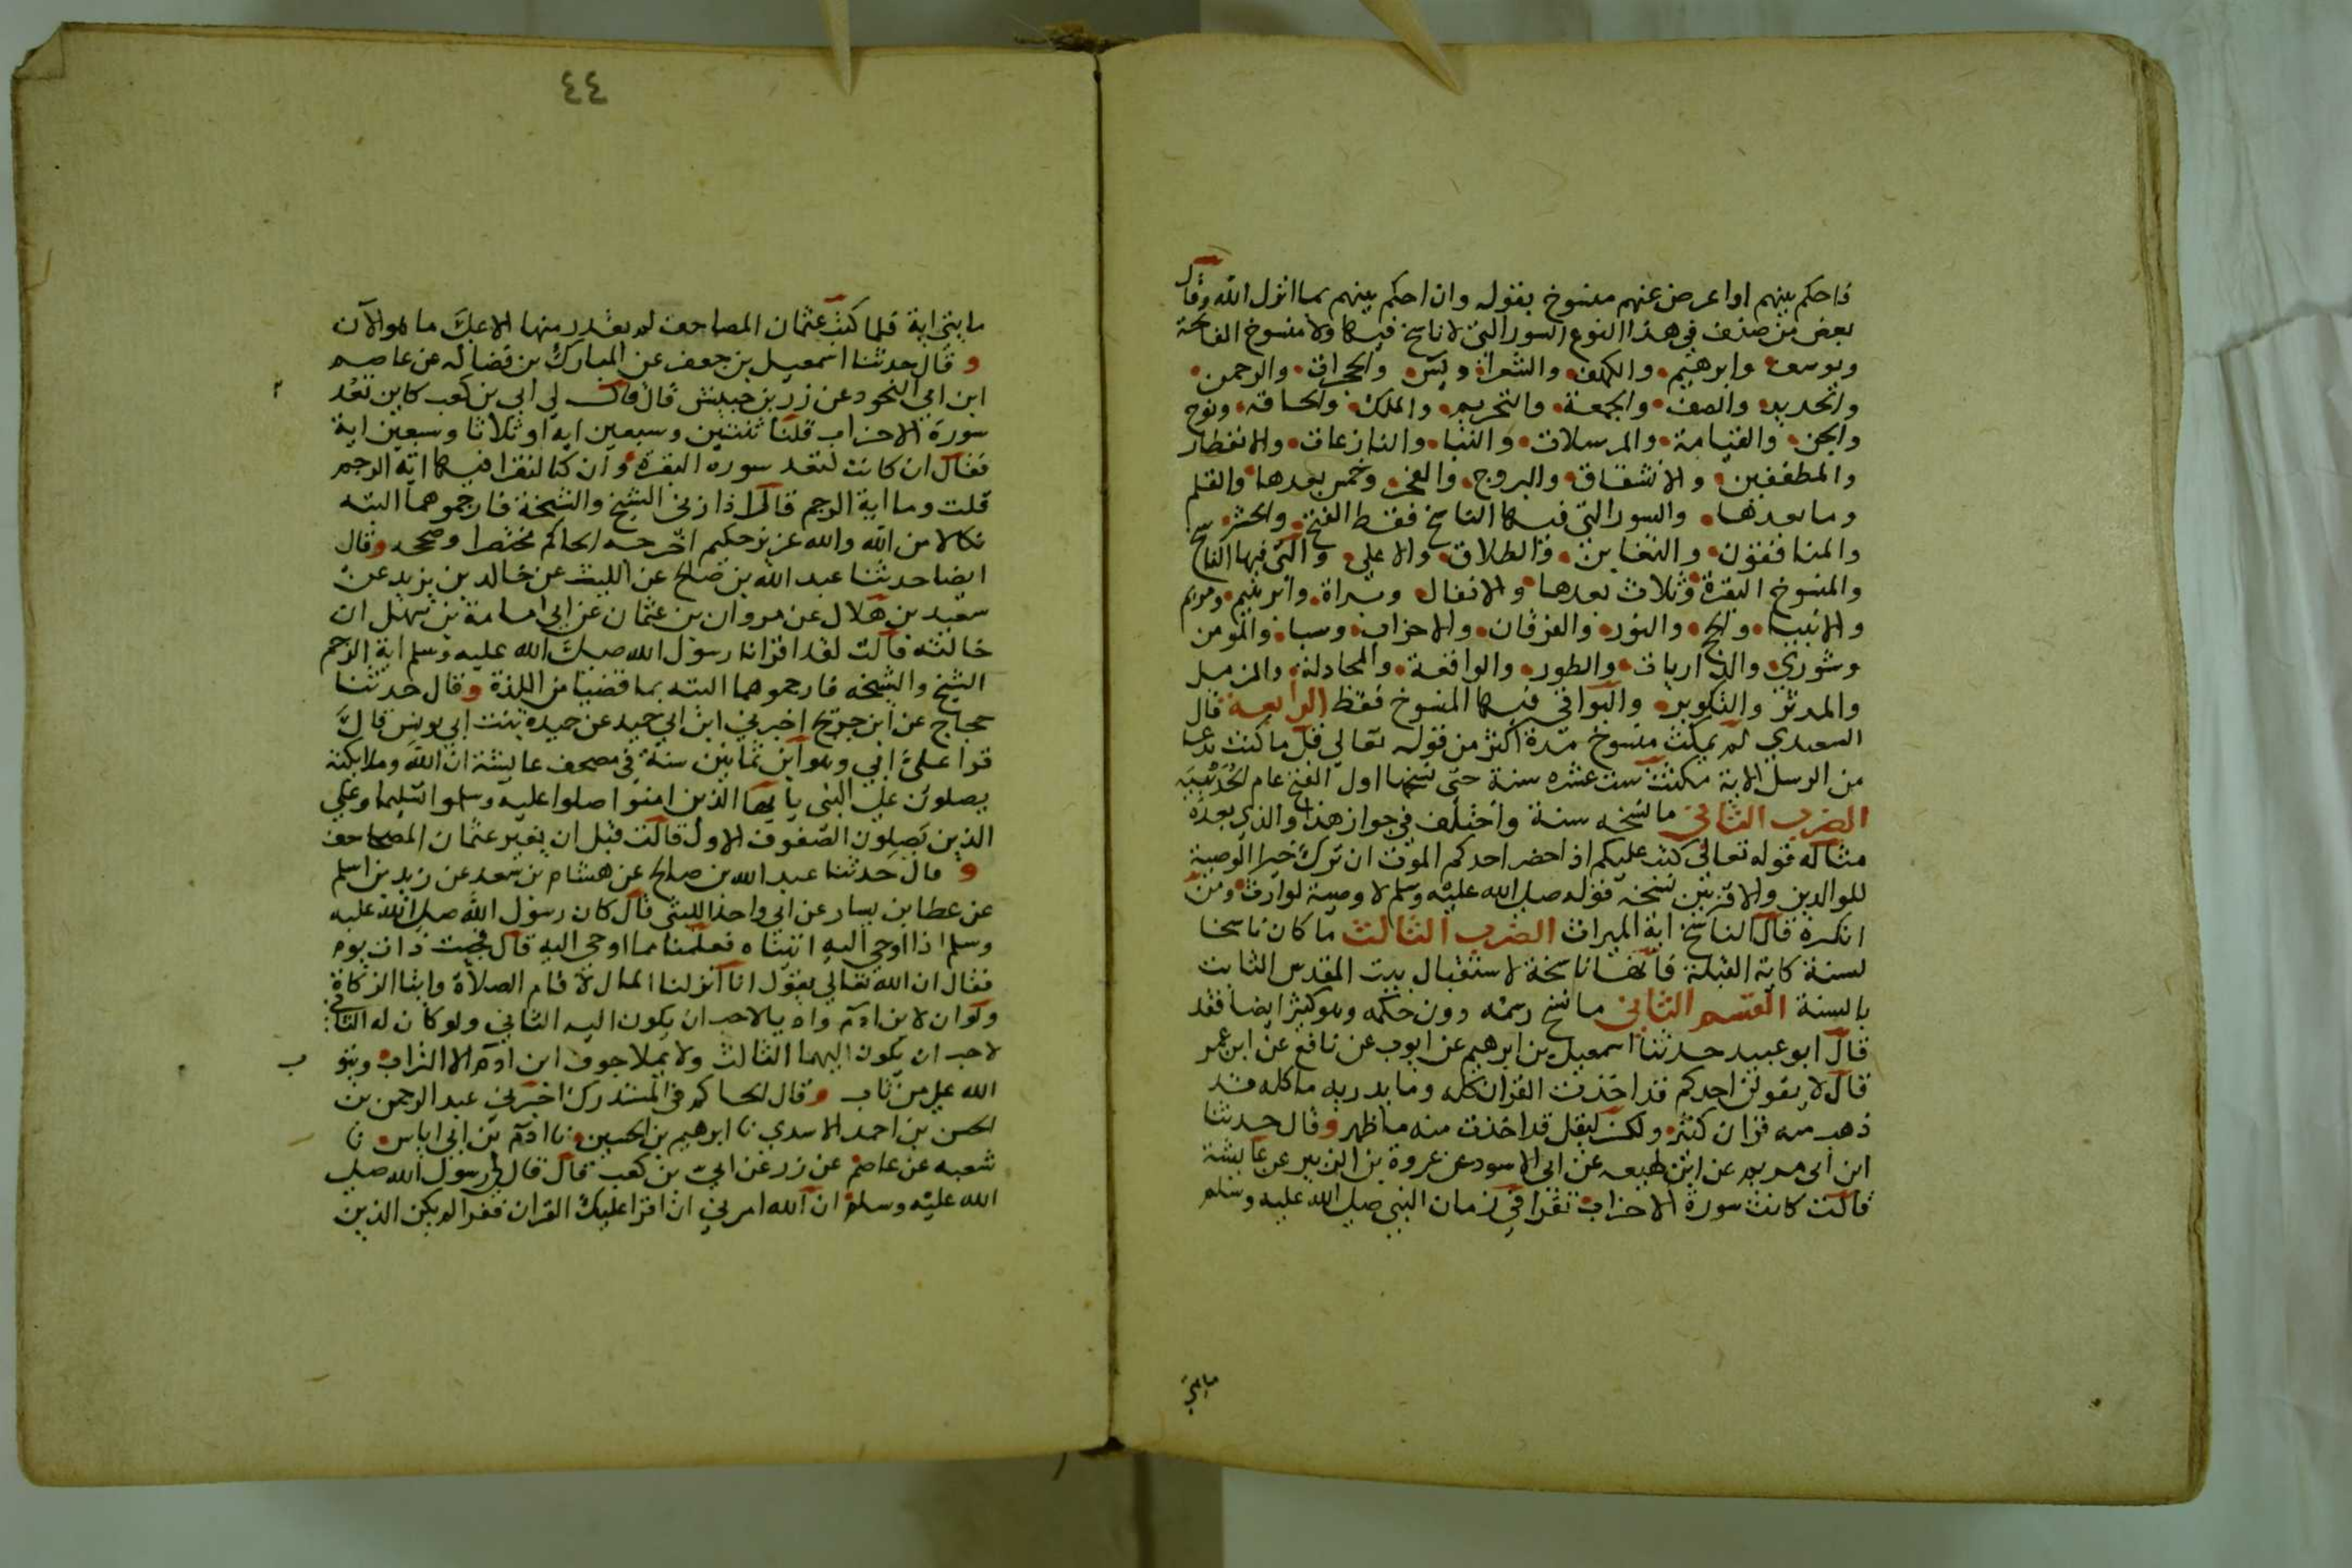 فاحكم بينهم او اعرض عنهم منسوخ بقوله وان احكم بينهم بما انزل الله وقال
بعض من صنف في هذا النوع السور التي لا ناسخ فيها ولا منسوخ الفاتحة
ويوسف وابرهيم والكهف والشعرا ويس والحجرات والرحمن
والحديد والصف والجمعة والتحريم والملك والحاقة ونوح
والجن والقيامة والمرسلات والنبا والنازعات والانفطار
والمطففين والانشقاق والبروج والفجر وخمس بعدها والقلم
وما بعدها والسور التي فيها الناسخ فقط الفتح والحشر
والمنافقون والتغابن والطلاق والاعلى والتي فيها الناسخ
والمنسوخ البقرة وثلاث بعدها والانفال وبراة وابرهيم ومريم
والانبيا والحج والنور والفرقان والاحزاب وسبا والمومن
وشوري والذاريات والطور والواقعة والمجادلة والمزمل
والمدثر والتكوير والبواقي فيها المنسوخ فقط الرابعة قال
السعيدي لم يمكث منسوخ مدة اكثر من قوله تعالي قل ما كنت بدعا
من الرسل الاية مكثت ست عشره سنة حتى نسخها اول الفتح عام الحديبية
الضرب الثاني ما نسخه سنة واختلف في جواز هذا والذي بعده
مثاله قوله تعالى كتب عليكم اذا حضر احدكم الموت ان ترك خيرا الوصية
للوالدين والاقربين نسخه قوله صلى الله عليه وسلم لا وصية لوارث ومن
انكره قال الناسخ اية الميراث الضرب الثالث ما كان ناسخا
لسنة كاية القبلة فانها ناسخة لاستقبال بيت المقدس الثابت
بالسنة القسم الثاني ما نسخ رسمه دون حكمه وهو كثير ايضا فقد
قال ابو عبيد حدثنا اسمعيل بن ابرهيم عن ايوب عن نافع عن ابن عمر
قال لا يقولن احدكم قد اخذت القران كله وما يدريه ما كله قد
ذهب منه قران كثير ولكن ليقل قد اخذت منه ما ظهر وقال حدثنا
ابن ابي مريم عن ابن لهيعه عن ابي الاسود عن عروة بن الزبير عن عايشة
قالت كانت سورة الاحزاب تقرا في زمان النبي صلى الله عليه وسلم
مايتي
٤٤
مايتي اية فلما كتب عثمان المصاحف لم يقدر منها الا على ما هو الآن
و قال حدثنا اسمعيل بن جعفر عن المبارك بن فضاله عن عاصم
ابن ابي النجود عن زر بن حبيش قال قال لي ابي بن كعب كاين تعد
سورة الاحزاب قلنا ثنتين وسبعين اية او ثلاثا وسبعين اية
فقال ان كانت لتعد سوره البقرة وان كنا لنقرا فيها اية الرجم
قلت وما اية الرجم قال اذا زنى الشيخ والشيخة فارجموهما البته
نكالا من الله والله عزيز حكيم اخرجه الحاكم مختصرا وصححه وقال
ايضا حدثنا عبد الله بن صالح عن الليث عن خالد بن يزيد عن
سعيد بن هلال عن مروان بن عثمان عن ابي امامة بن سهل ان
خالته قالت لقد اقرانا رسول الله صلى الله عليه وسلم اية الرجم
الشيخ والشيخه فارجموهما البته بما قضيا من اللذة وقال حدثنا
حجاج عن ابن جريج اخبرني ابن ابي حميد عن حميدة بنت ابي يونس قال
قرا علىّ ابي وهو ابن ثمانين سنة في مصحف عايشة ان الله وملايكته
يصلون على النبي يا يها الذين امنوا صلوا عليه وسلموا تسليما وعلى
الذين يصلون الصفوف الاول قالت قبل ان يغير عثمان المصاحف
و قال حدثنا عبد الله بن صالح عن هشام بن سعد عن زيد بن اسلم
عن عطا بن يسار عن ابي واحد الليثي قال كان رسول الله صلى الله عليه
وسلم اذا اوحي اليه اتيناه فعلمنا مما اوحي اليه قال فجيت ذات يوم
فقال ان الله تعالي يقول انا انزلنا المال لاقام الصلاة وايتا الزكاة
ولو ان لابن ادم واديا لاحب ان يكون اليه الثاني ولو كان له الثاني
لاحب ان يكون اليهما الثالث ولا يملا جوف ابن ادم الا التراب ويتو ب
الله على من تاب وقال الحاكم في المستدرك اخبرني عبد الرحمن بن
الحسن بن احمد الاسدي نا ابرهيم بن الحسين نا ادم بن ابي اياس نا
شعبه عن عاصم عن زر عن ابيّ بن كعب قال قال لي رسول الله صلى
الله عليه وسلم ان الله امرني ان اقرا عليك القران فقرا لم يكن الذين